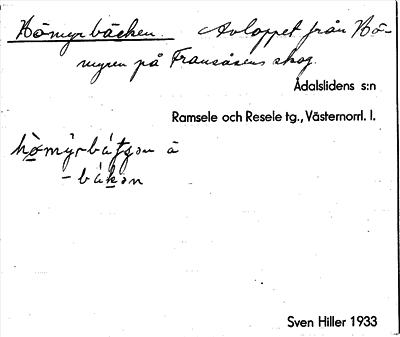 Hömyrbäcken. Avloppet från Hö-
myren på Fransåsens skog.
Ådalslidens s:n
Ramsele och Resele tg., Västernorrl. l.
å
Sven Hiller 1933